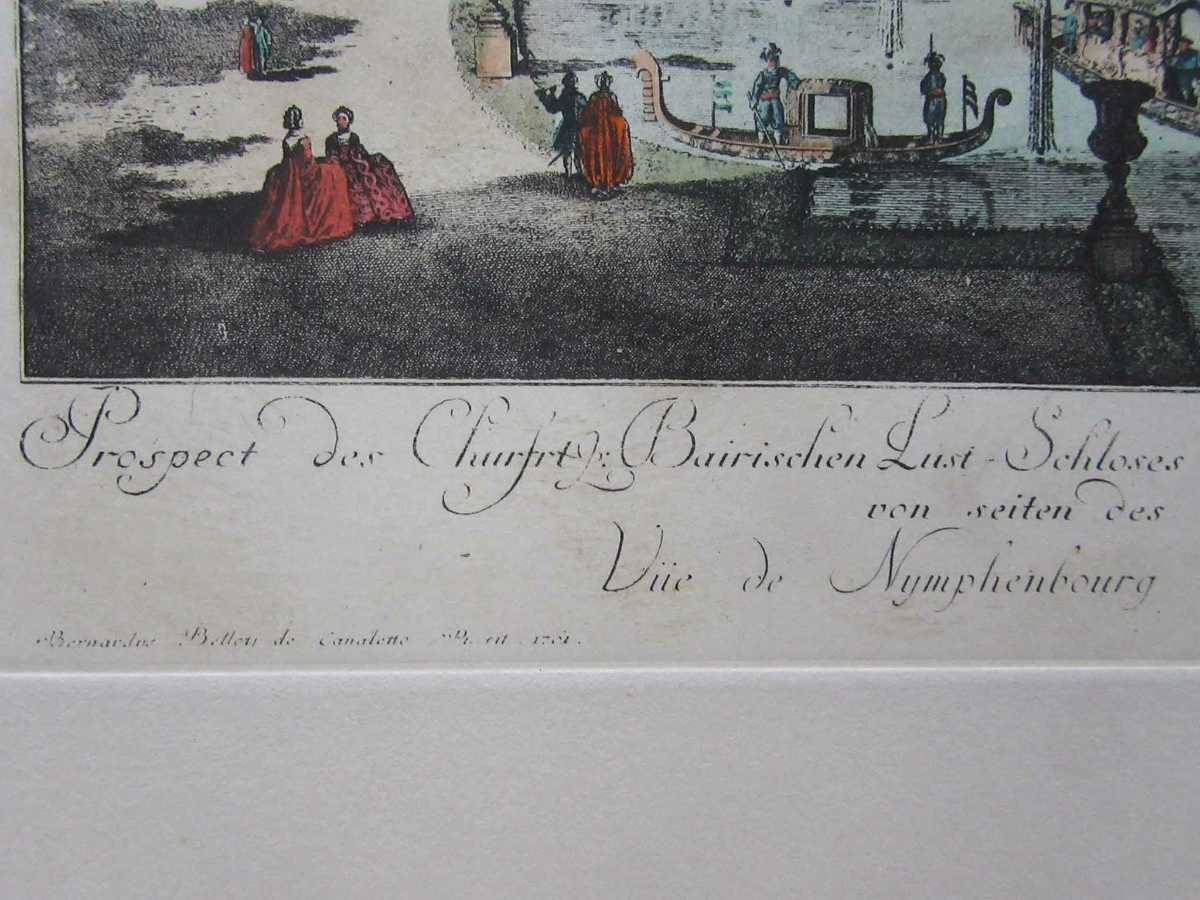 Prospect des Churfrtl: Bairischen Lust-Schloses
von seiten des
Vüe de Nymphenbourg
Bernardus Belloti de Canaletto Pi 1761.